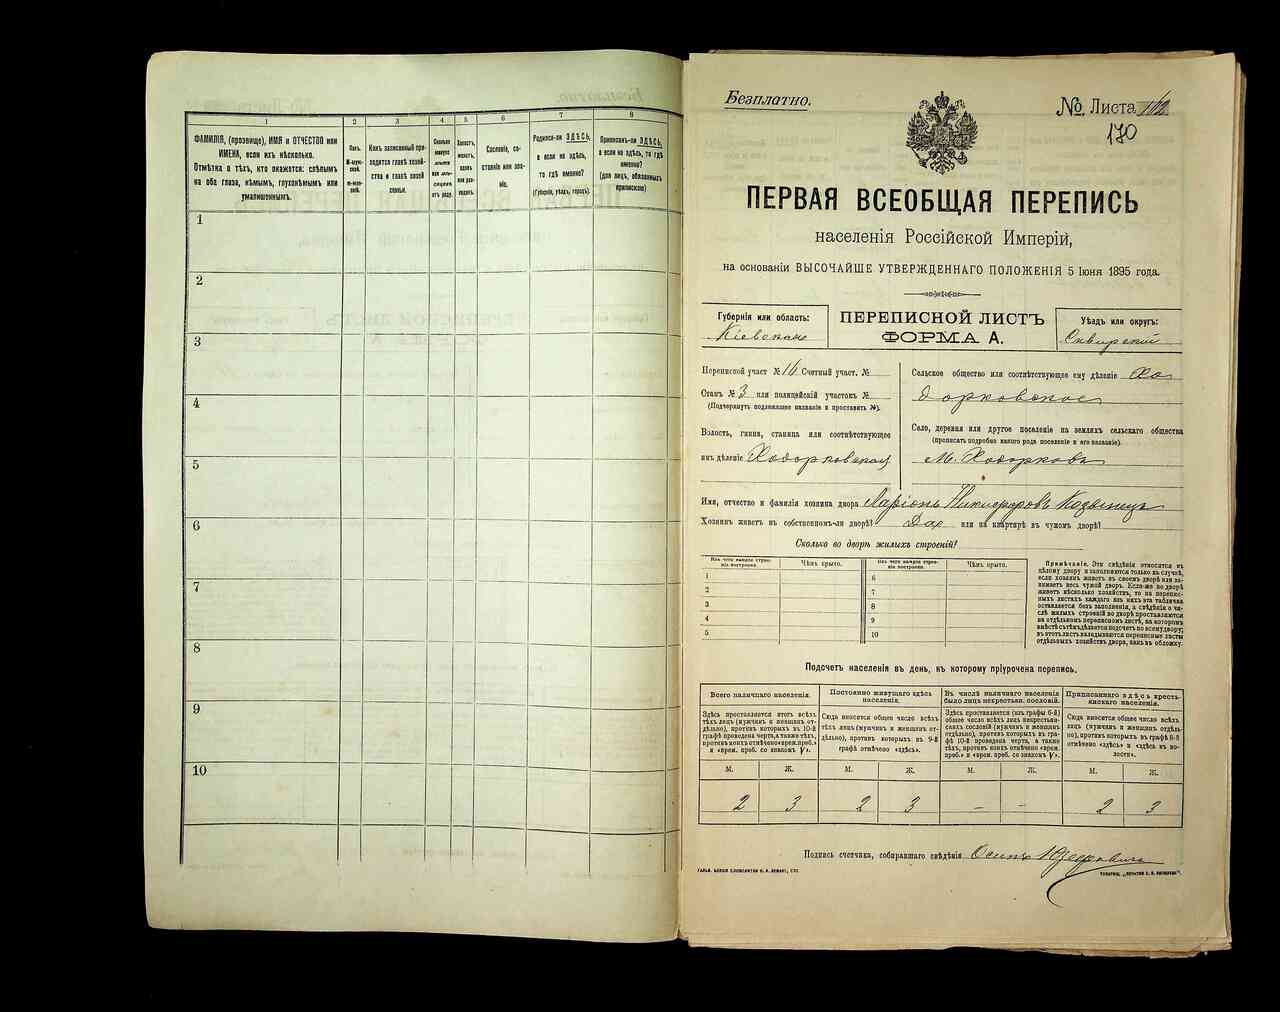 1
2
3
4
5
6
7
8
ФАМИЛІЯ, (прозвище), ИМЯ и ОТЧЕСТВО или
ИМЕНА, если ихъ нѣсколько.
Отмѣтка о тѣхъ, кто окажется: слѣпымъ
на оба глаза, нѣмымъ, глухонѣмымъ или
умалишеннымъ.
Полъ.
М-муж-
ской.
ж-жен-
скій.
Какъ записанный при-
ходится главѣ хозяй-
ства и главѣ своей
семьи.
Сколько
минуло
лѣтъ
или мѣ-
сяцевъ
отъ роду.
Холостъ,
женатъ,
вдовъ
или раз-
веденъ.
Сословіе, со-
стояніе или зва-
ніе.
Родился-ли ЗДѢСЬ,
а если не здѣсь,
то гдѣ именно?
(Губернія, уѣздъ, городъ).
Приписанъ-ли ЗДѢСЬ,
а если не здѣсь, то гдѣ
именно?
(для лицъ, обязанныхъ
припискою)
1
2
3
4
5
6
7
8
9
10
Безплатно.
№ Листа
170
ПЕРВАЯ ВСЕОБЩАЯ ПЕРЕПИСЬ
населенія Россійской Имперіи,
на основаніи ВЫСОЧАЙШЕ УТВЕРЖДЕННАГО ПОЛОЖЕНІЯ 5 Іюня 1895 года.
Губернія или область:
Кіевская
ПЕРЕПИСНОЙ ЛИСТЪ
ФОРМА А.
Уѣздъ или округъ:
Сквирскій
Переписной участ № 16 Счетный участ. №
Станъ № 3 или полицейскій участокъ №
(Подчеркнуть подлежащее названіе и проставить №).
Волость, гмина, станица или соотвѣтствующее
имъ дѣленіе Ходорковская
Сельское общество или соотвѣтствующее ему дѣленіе Хо
дорковское
Село, деревня или другое поселеніе на земляхъ сельскаго общества
(прописать подробно какого рода поселеніе и его названіе).
М. Ходорковъ
Имя, отчество и фамилія хозяина двора Ларіонъ Никифоровъ
Хозяинъ живетъ въ собственномъ-ли дворѣ? Да или на квартирѣ въ чужомъ дворѣ?
Сколько во дворѣ жилыхъ строеній?
Изъ чего каждое строе-
ніе построено.
Чѣмъ крыто.
Изъ чего каждое строе-
ніе построено.
Чѣмъ крыто.
1
2
3
4
5
6
7
8
9
10
Примѣчаніе. Эти свѣдѣнія относятся къ
цѣлому двору и заполняются только въ случаѣ,
если хозяинъ живетъ въ своемъ дворѣ или за-
нимаетъ весь чужой дворъ. Если-же во дворѣ
живетъ нѣсколько хозяйствъ, то на перепис-
ныхъ листахъ каждаго изъ нихъ эта табличка
оставляется безъ заполненія, а свѣдѣнія о чи-
слѣ жилыхъ строеній во дворѣ проставляются
на отдѣльномъ переписномъ листѣ, на которомъ
вмѣстѣ съ тѣмъ дѣлается подсчетъ по всему двору;
въ этотъ листъ вкладываются переписные листы
отдѣльныхъ хозяйствъ двора, какъ въ обложку.
Подсчетъ населенія въ день, къ которому пріурочена перепись.
Всего наличнаго населенія.
Здѣсь проставляется итогъ всѣхъ
тѣхъ лицъ (мужчинъ и женщинъ от-
дѣльно), противъ которыхъ въ 10-й
графѣ проведена черта, а также тѣхъ,
противъ коихъ отмѣчено «врем. преб.»
и «врем. преб. со знакомъ V».
Постоянно живущаго здѣсь
населенія.
Сюда вносится общее число всѣхъ
тѣхъ лицъ (мужчинъ и женщинъ от-
дѣльно), противъ которыхъ въ 9-й
графѣ отмѣчено «здѣсь».
Въ числѣ наличнаго населенія
было лицъ некрестьян. сословій.
Здѣсь проставляется (изъ графы 6-й)
общее число всѣхъ лицъ некрестьян-
скихъ сословій (мужчинъ и женщинъ
отдѣльно), противъ которыхъ въ гра-
фѣ 10-й проведена черта, а также
тѣхъ, противъ коихъ отмѣчено «врем.
преб.» и «врем. преб. со знакомъ V».
Приписаннаго здѣсь кресть-
янскаго населенія.
Сюда вносится общее число всѣхъ
лицъ (мужчинъ и женщинъ отдѣль-
но), противъ которыхъ въ графѣ 8-й
отмѣчено «здѣсь» и «здѣсь въ во-
лости».
М. Ж. М. Ж. М. Ж. М. Ж.
2 3 2 3 – – 2 3
Подпись счетчика, собиравшаго свѣдѣнія Осипъ